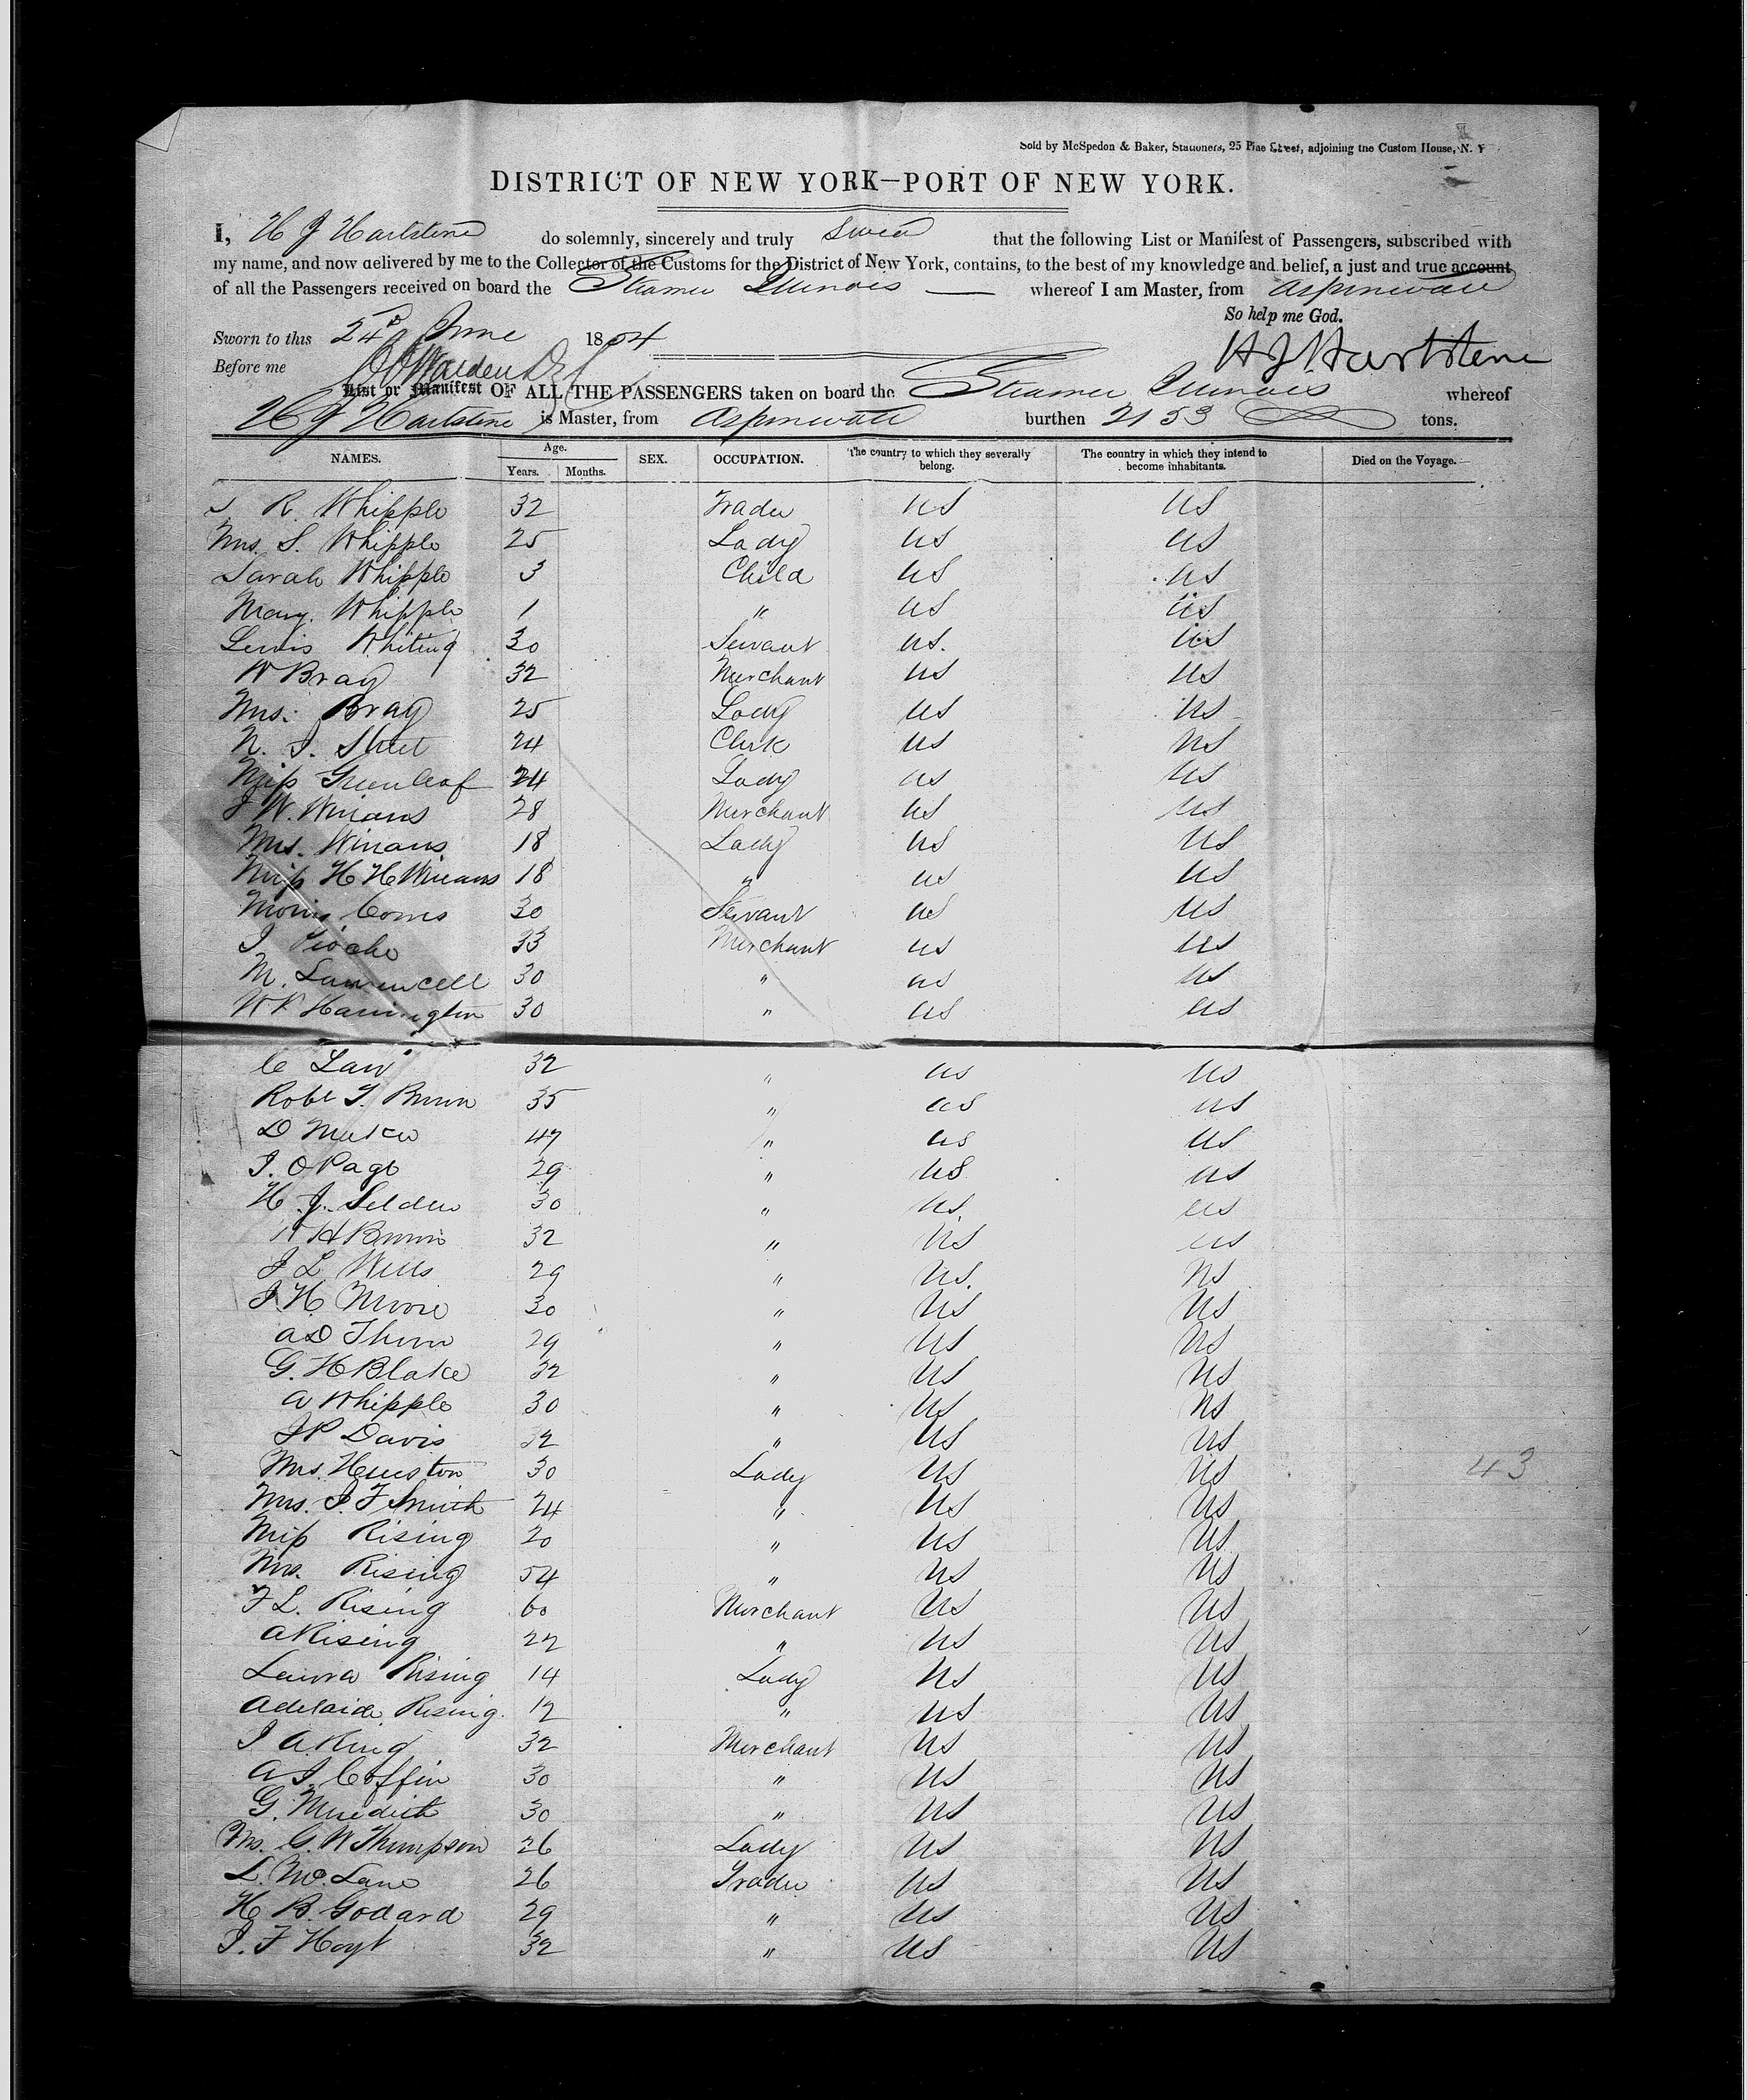 Sold by McSpedon & Baker, Stationers, 25 Pine Street, adjoining the Custom House, N. Y
DISTRICT OF NEW YORK—PORT OF NEW YORK.
I, H J Hartstene do solemnly, sincerely and truly swear that the following List or Manifest of Passengers, subscribed with
my name, and now delivered by me to the Collector of the Customs for the District of New York, contains, to the best of my knowledge and belief, a just and true account
of all the Passengers received on board the Steamer Illinois whereof I am Master, from Aspinwall
So help me God.
Sworn to this 24 June 1854
H J Hartstene
Before me
List or Manifest OF ALL THE PASSENGERS taken on board the Steamer Illinois whereof
H J Hartstene is Master, from Aspinwall burthen 2153 tons.
NAMES. Age. Years. Months. SEX. OCCUPATION. The country to which they severally belong. The country in which they intend to become inhabitants. Died on the Voyage.
S. R. Whipple 32 Trader US US
Mrs. S. Whipple 25 Lady US US
Sarah Whipple 3 Child US US
Mary. Whipple 1 " US US
Lewis Whiting 30 Servant US. US
W Bray 32 Merchant US US
Mrs. Bray 25 Lady US US
N. J. Street 24 Clerk US US
Miss Greenleaf 24 Lady US US
J W. Winans 28 Merchant US US
Mrs. Winans 18 Lady US US
Miss H H Winans 18 " US US
Morris Comes 30 Servant US US
J 33 Merchant US US
M. 30 " US US
W P Harrington 30 " US US
C Law 32 " US US
Robt T. Brown 35 " US US
D 47 " US US
J. O Page 29 " US US
H. J. Selden 30 " US. US
H Brown 32 " US US
J L Wells 29 " US. US
J. H. Moore 30 " US US
A D Thorn 29 " US US
G. H Blake 32 " US US
A Whipple 30 " US US
J P Davis 32 " US US
Mrs. Heuston 30 Lady US US 43
Mrs. J. F Smith 24 " US US
Miss Rising 20 " US US
Mrs. Rising 54 " US US
F L. Rising 60 Merchant US US
A Rising 22 " US US
Laura Rising 14 Lady US US
Adelaide Rising. 12 " US US
J A. King 32 Merchant US US
A J. Coffin 30 " US US
G. Meredith 30 " US US
Mrs. G. W Thompson 26 Lady US US
L. Mc. Lane 26 Trader US US
H B. Godard 29 " US US
J. F Hoyt 32 " US US